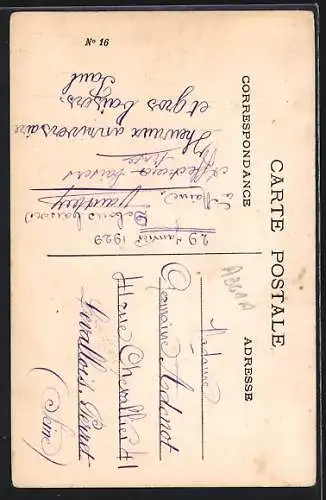 CARTE POSTALE
CORRESPONDANCE
ADRESSE
29 Janvier 1929
De bons baisers
à Mimi.
Affectueux baisers
Heureux anniversaire
et gros baisers.
Paul
Nº 16
Madame
Germaine
41 rue Chevallier 41
Levallois-Perret
(Seine)